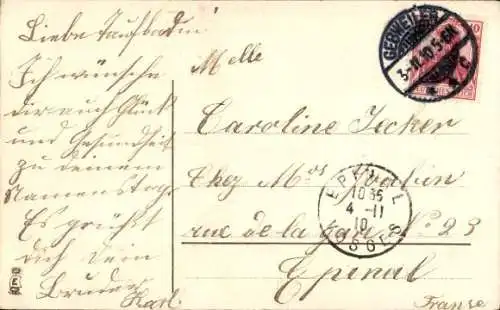 Liebe Taufbadin!
Ich wünsche
dir auch Glück
und Gesundheit
zu deinem
Namenstage
Es grüßt
dich dein
Bruder Karl.
Melle
Caroline Jecker
Chez Mos
rue de la gare No 23
Epinal
Franse
GEBWEILER
3.11.10.5-6N
c
10
EPINAL
10 35
4 - 11
10
VOSGES